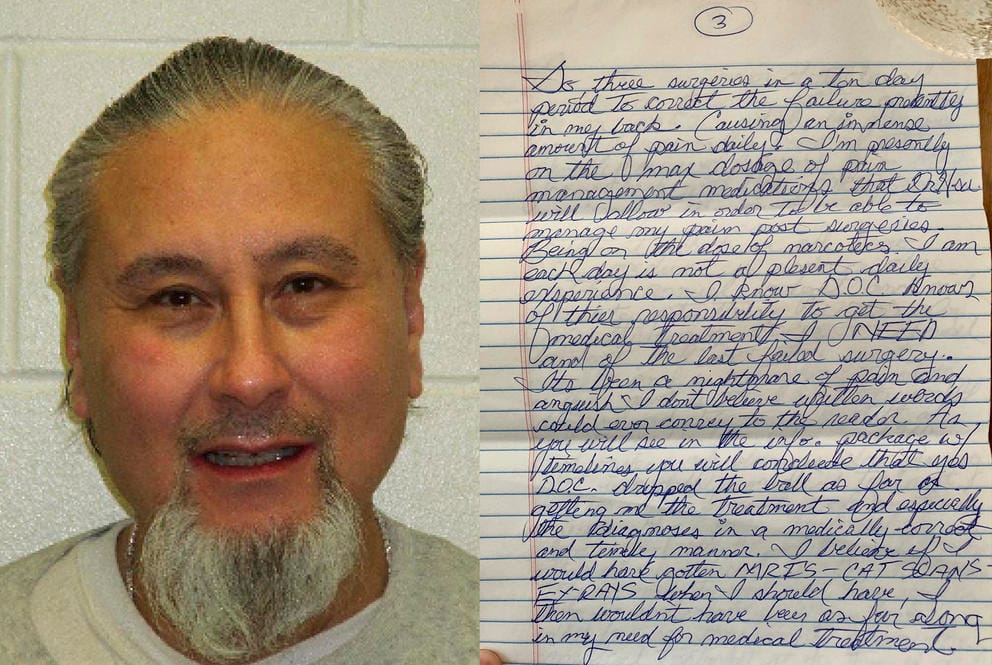 3
So, three surgeries in a ten day
period to correct the failure presently
in my back. Causing an immense
amount of pain daily. I'm presently
on the max dosage of pain
management medications that Dr.
will allow in order to be able to
manage my pain post surgeries.
Being on the dose of narcotics I am
each day is not a plesent daily
experiance. I know D.O.C. knows
of thier responsibility to get the
medical treatment I NEED
and of the last failed surgery.
Its been a nightmare of pain and
anguish I dont believe written words
could ever convey to the reader. As
you will see in the info. package w/
timelines you will conclude that yes
D.O.C. dropped the ball as far as
getting me the treatment and especially
the diagnoses in a medically correct
and timely manner. I believe if I
would have gotten MRI'S-CAT SCANS-
EXRAYS when I should have, I
then wouldn't have been as far along
in my need for medical treatment